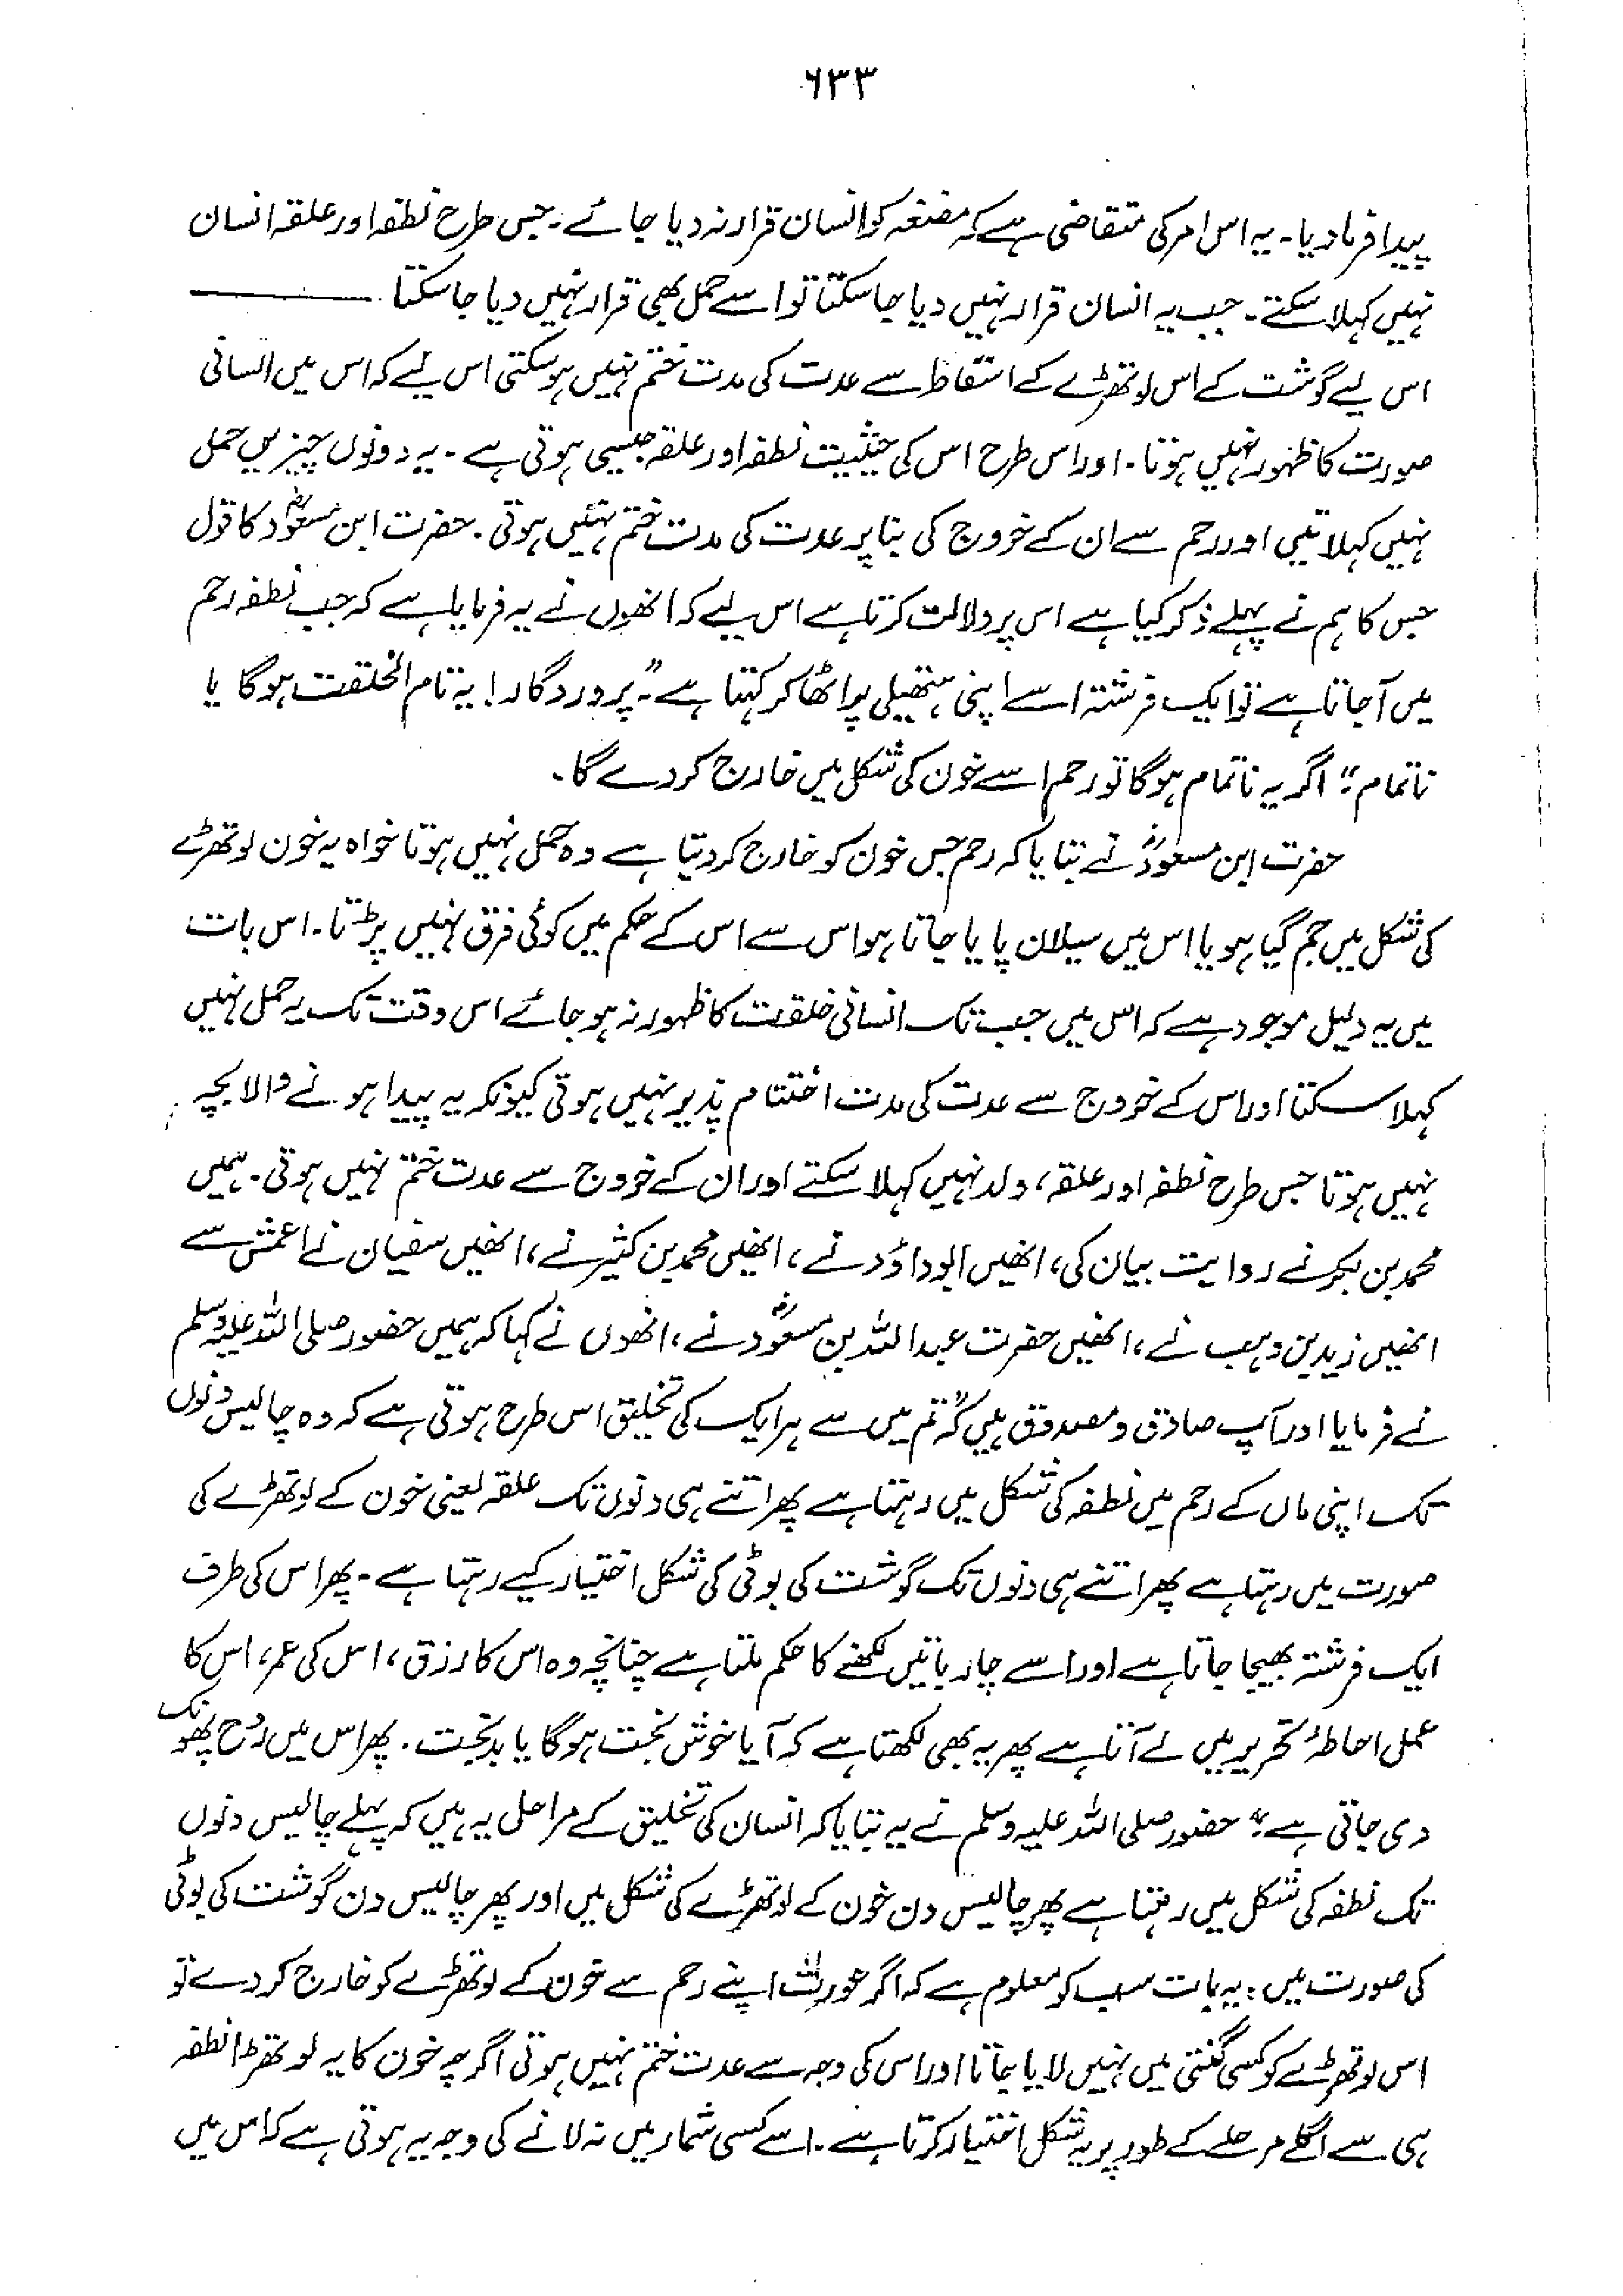 ۶۳۳
پیدا فرما دیا۔ یہ اس امر کی متقاضی ہے کہ مضغہ کو انسان قرار نہ دیا جائے۔ جس طرح نطفہ اور علقہ انسان
نہیں کہلا سکتے۔ جب یہ انسان قرار نہیں دیا جا سکتا تو اسے حمل بھی قرار نہیں دیا جا سکتا ———
اس لیے گوشت کے اس لوتھڑے کے اسقاط سے عدت کی مدت ختم نہیں ہو سکتی اس لیے کہ اس میں انسانی
صورت کا ظہور نہیں ہوتا۔ اور اس طرح اس کی حیثیت نطفہ اور علقہ جیسی ہوتی ہے۔ یہ دونوں چیزیں حمل
نہیں کہلاتیں اور رحم سے ان کے خروج کی بنا پر عدت کی مدت ختم نہیں ہوتی۔ حضرت ابن مسعودؓ کا قول
جس کا ہم نے پہلے ذکر کیا ہے اس پر دلالت کرتا ہے اس لیے کہ انھوں نے یہ فرمایا ہے کہ جب نطفہ رحم
میں آ جاتا ہے تو ایک فرشتہ اسے اپنی ہتھیلی پر اٹھا کر کہتا ہے۔ "پروردگار! یہ تام الخلقت ہوگا یا
ناتمام"؛ اگر یہ ناتمام ہوگا تو رحم اسے خون کی شکل میں خارج کر دے گا۔
حضرت ابن مسعودؓ نے بتایا کہ رحم جس خون کو خارج کر دیتا ہے وہ حمل نہیں ہوتا خواہ یہ خون لوتھڑے
کی شکل میں جم گیا ہو یا اس میں سیلان پایا جاتا ہو اس سے اس کے حکم میں کوئی فرق نہیں پڑتا۔ اس بات
میں یہ دلیل موجود ہے کہ اس میں جب تک انسانی خلقت کا ظہور نہ ہو جائے اس وقت تک یہ حمل نہیں
کہلا سکتا اور اس کے خروج سے عدت کی مدت اختتام پذیر نہیں ہوتی کیونکہ یہ پیدا ہونے والا بچہ
نہیں ہوتا جس طرح نطفہ اور علقہ، ولد نہیں کہلا سکتے اور ان کے خروج سے عدت ختم نہیں ہوتی۔ ہمیں
محمد بن بکر نے روایت بیان کی، انھیں ابو داؤد نے، انھیں محمد بن کثیر نے، انھیں سفیان نے اعمش سے
انھیں زید بن وہب نے، انھیں حضرت عبد اللہ بن مسعودؓ نے، انھوں نے کہا کہ ہمیں حضور صلی اللہ علیہ وسلم
نے فرمایا اور آپ صادق و مصدوق ہیں کہ "تم میں سے ہر ایک کی تخلیق اس طرح ہوتی ہے کہ وہ چالیس دنوں
تک اپنی ماں کے رحم میں نطفہ کی شکل میں رہتا ہے پھر اتنے ہی دنوں تک علقہ یعنی خون کے لوتھڑے کی
صورت میں رہتا ہے پھر اتنے ہی دنوں تک گوشت کی بوٹی کی شکل اختیار کیے رہتا ہے۔ پھر اس کی طرف
ایک فرشتہ بھیجا جاتا ہے اور اسے چار باتیں لکھنے کا حکم ملتا ہے چنانچہ وہ اس کا رزق، اس کی عمر، اس کا
عمل احاطۂ تحریر میں لے آتا ہے پھر یہ بھی لکھتا ہے کہ آیا خوش بخت ہوگا یا بدبخت۔ پھر اس میں روح پھونک
دی جاتی ہے" حضور صلی اللہ علیہ وسلم نے یہ بتایا کہ انسان کی تخلیق کے مراحل یہ ہیں کہ پہلے چالیس دنوں
تک نطفہ کی شکل میں رہتا ہے پھر چالیس دن خون کے لوتھڑے کی شکل میں اور پھر چالیس دن گوشت کی بوٹی
کی صورت میں: یہ بات سب کو معلوم ہے کہ اگر عورت اپنے رحم سے خون کے لوتھڑے کو خارج کر دے تو
اس لوتھڑے کو کسی گنتی میں نہیں لایا جاتا اور اس کی وجہ سے عدت ختم نہیں ہوتی اگرچہ خون کا یہ لوتھڑا نطفہ
ہی سے اگلے مرحلے کے طور پر یہ شکل اختیار کرتا ہے۔ اسے کسی شمار میں نہ لانے کی وجہ یہ ہوتی ہے کہ اس میں